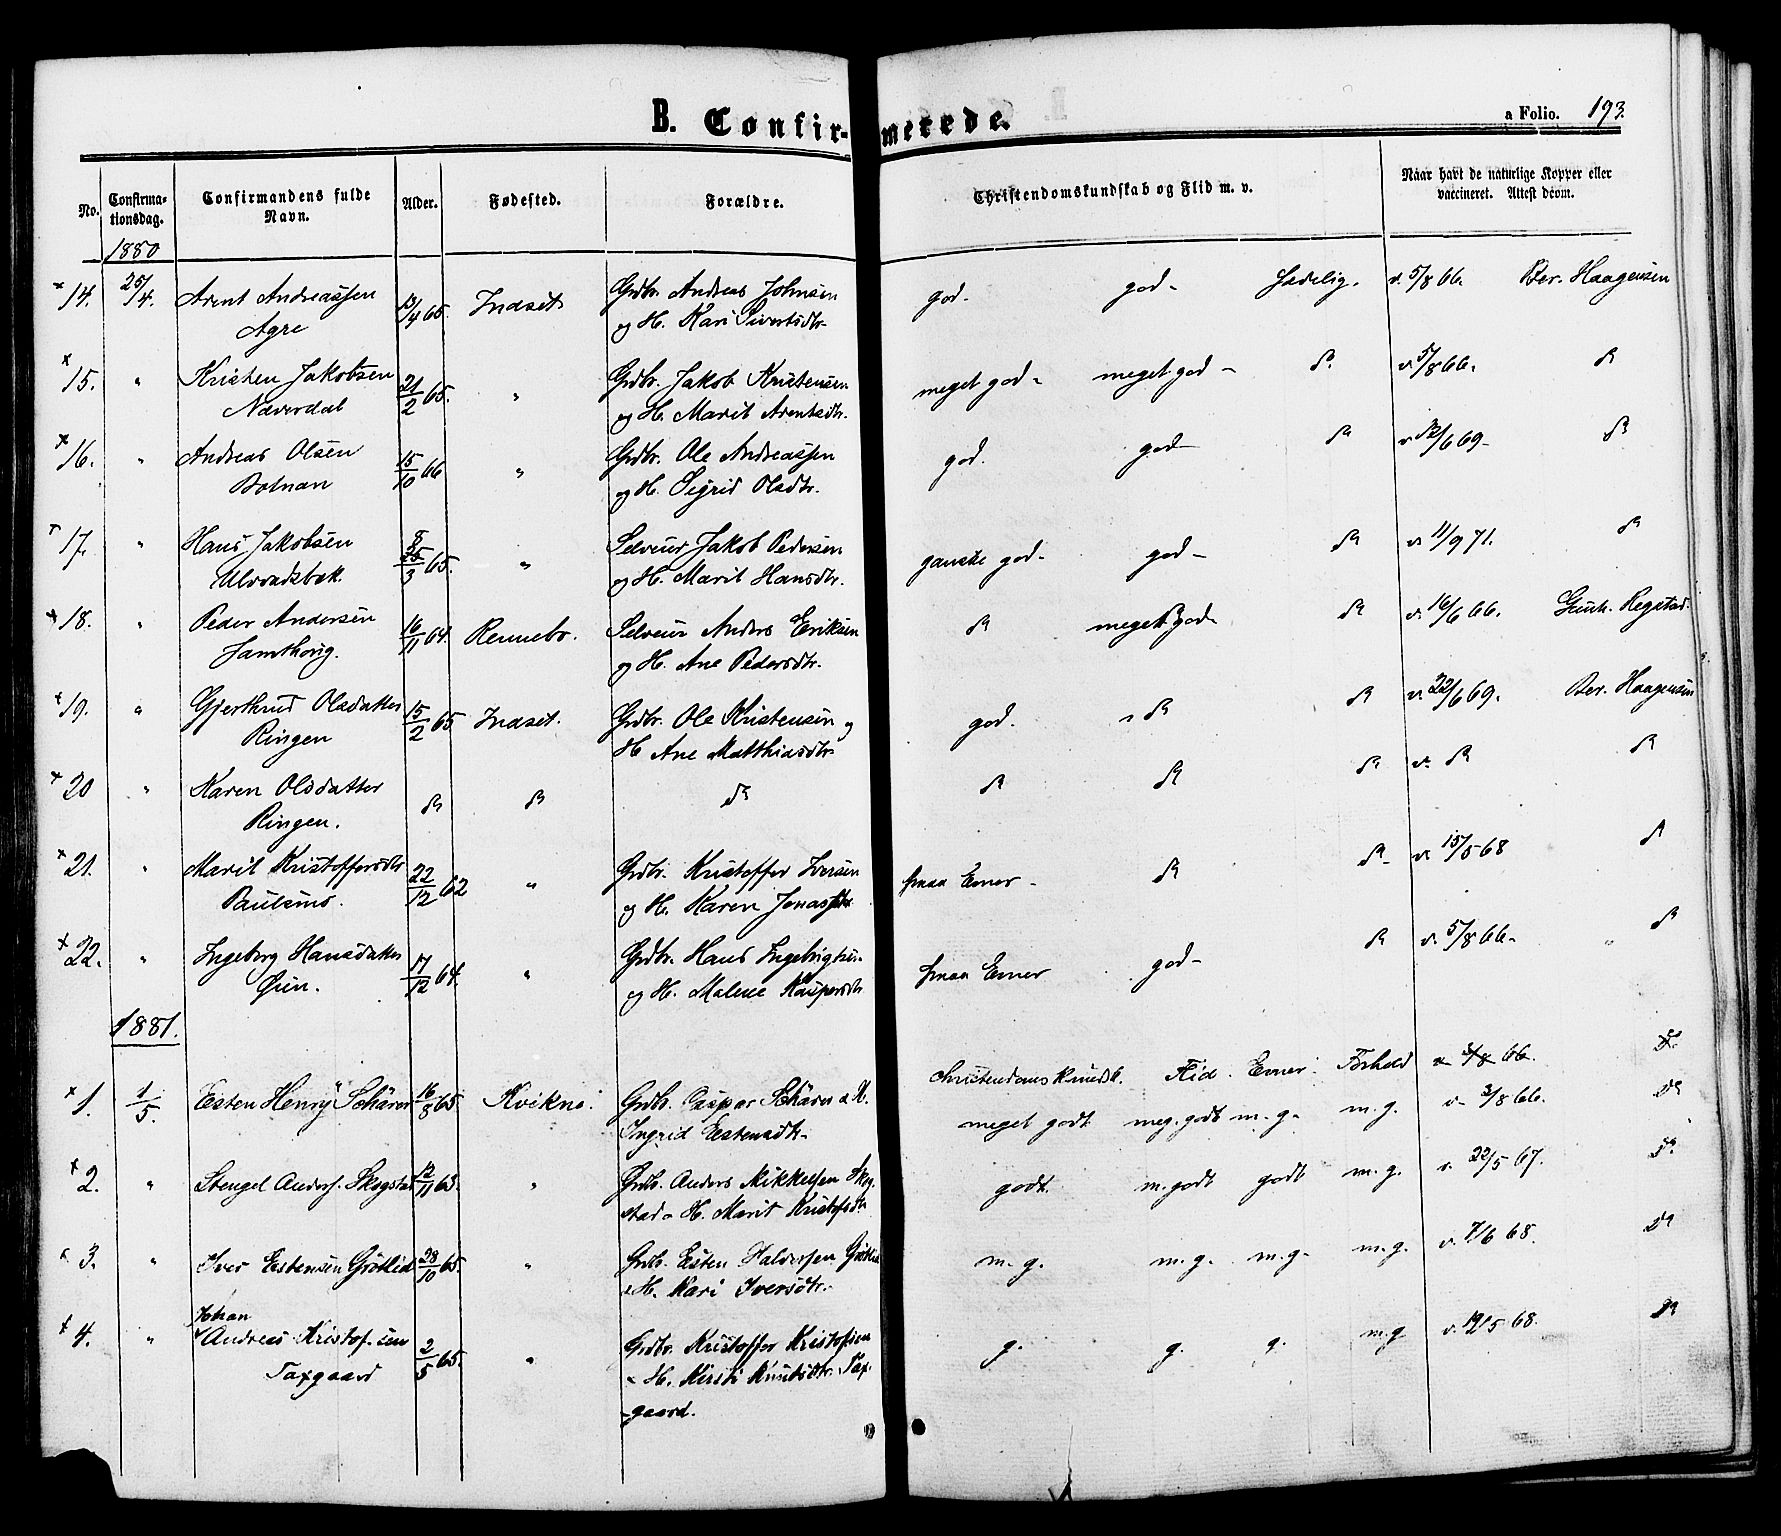 B. Confirmerede. a Folio. 193.
No. Confirmationsdag. Confirmandens fulde Navn. Alder. Fødested. Forældre. Christendomskundskab og Flid m. v. Naar havt de naturlige Kopper eller vaccineret. Attest derom.
1880
14. 25/4. Arent Andreassen 13/4 65. Indset Grdbr. Andreas Johnsen god. god - Sædelig. v. 5/8 66. Ber. Haagensen
Agre og H. Kari Sivertsdtr.
15. " Kristen Jakobsen 21/2 65. " Grdbr. Jakob Kristensen meget god - meget god - do v. 5/8 66. do
Næverdal og H. Marit Arentsdtr.
16. " Andreas Olsen 15/10 66 " Grdbr. Ole Andreassen god. god - do v. 22/6 69 - do
Bolnan og H. Sigrid Olsdtr.
17. " Hans Jakobsen 8/3 65. " Selveier Jakob Pedersen ganske god - god - do v. 11/9 71. do
Ulvaadsbæk. og H. Marit Hansdtr.
18. " Peder Andersen 16/11 64. Rennebo. Selveier Anders Eriksen do meget god - do v. 16/6 66. Gunh. Regstad
og H. Ane Pedersdtr.
19. " Gjerthrud Olsdatter 15/2 65 Indset. Grdbr. Ole Kristensen og god. " do do v. 22/6 69. Ber. Haagensen
Ringen H. Ane Matthiasdtr
20 " Karen Olsdatter do do do do do do v. do do
Ringen.
21. " Marit Kristoffersdtr 22/12 62 " Grdbr. Kristoffer Iversen smaa Evner - do do - v. 15/5 68 do
Paulsmo. og H. Karen Jonasdtr
22. " Ingeborg Hansdatter 17/12 64. " Grdbr. Hans Ingebrigtsen smaa Evner god - do v. 5/8 66 - " do
Øien. og H. Malene Kaspersdtr
1881.
Christendomskundsk. Flid. Evner. Forhold
1. 1/5. Esten Henry Schärer 16/8 65. Kvikne. Grdbr. Caspar Schärer & H. meget godt meg. godt m. g. m. g. v. 3/8 66. do
Ingrid Estensdtr.
2. " Stengel Anders. Skogstad 12/11 63. " Grdb. Anders Mikkelsen Skog- godt. m. godt godt m. g. v. 22/5 67. do
stad & H. Marit Kristofsdtr
3. " Iver Estensen Grötlid 28/10 65. " Grdb. Esten Halvorsen Grötlid m. g. m. g. m. g. m. g. v. 7/6 68. do
& H. Kari Iversdtr.
Johan
4. " Andreas Kristof.sen 2/5 65. " Grdbr. Kristoffer Kristofsen g. g. g. m. g v. 19/5 68. do
Taxgaard & H. Kirsti Knutsdtr. Tax-
gaard.